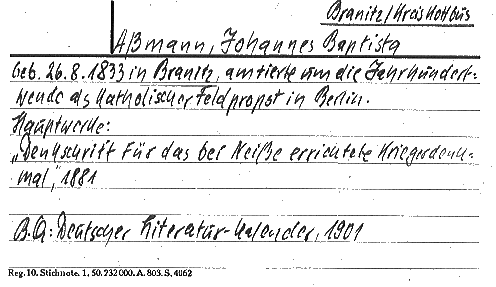 Branitz/Kreis Kottbus
Aßmann, Johannes Baptista
Geb. 26.8.1833 in Branitz, amtierte um die Jahrhundert-
wende als Katholischer Feldpropst in Berlin.
Hauptwerke:
„Denkschrift für das bei Neiße errichtete Kriegerdenk-
mal", 1881
B.Q: Deutscher Literatur-Kalender, 1901
Reg. 10. Stichnote. 1. 50. 232 000. A. 803. S. 4062